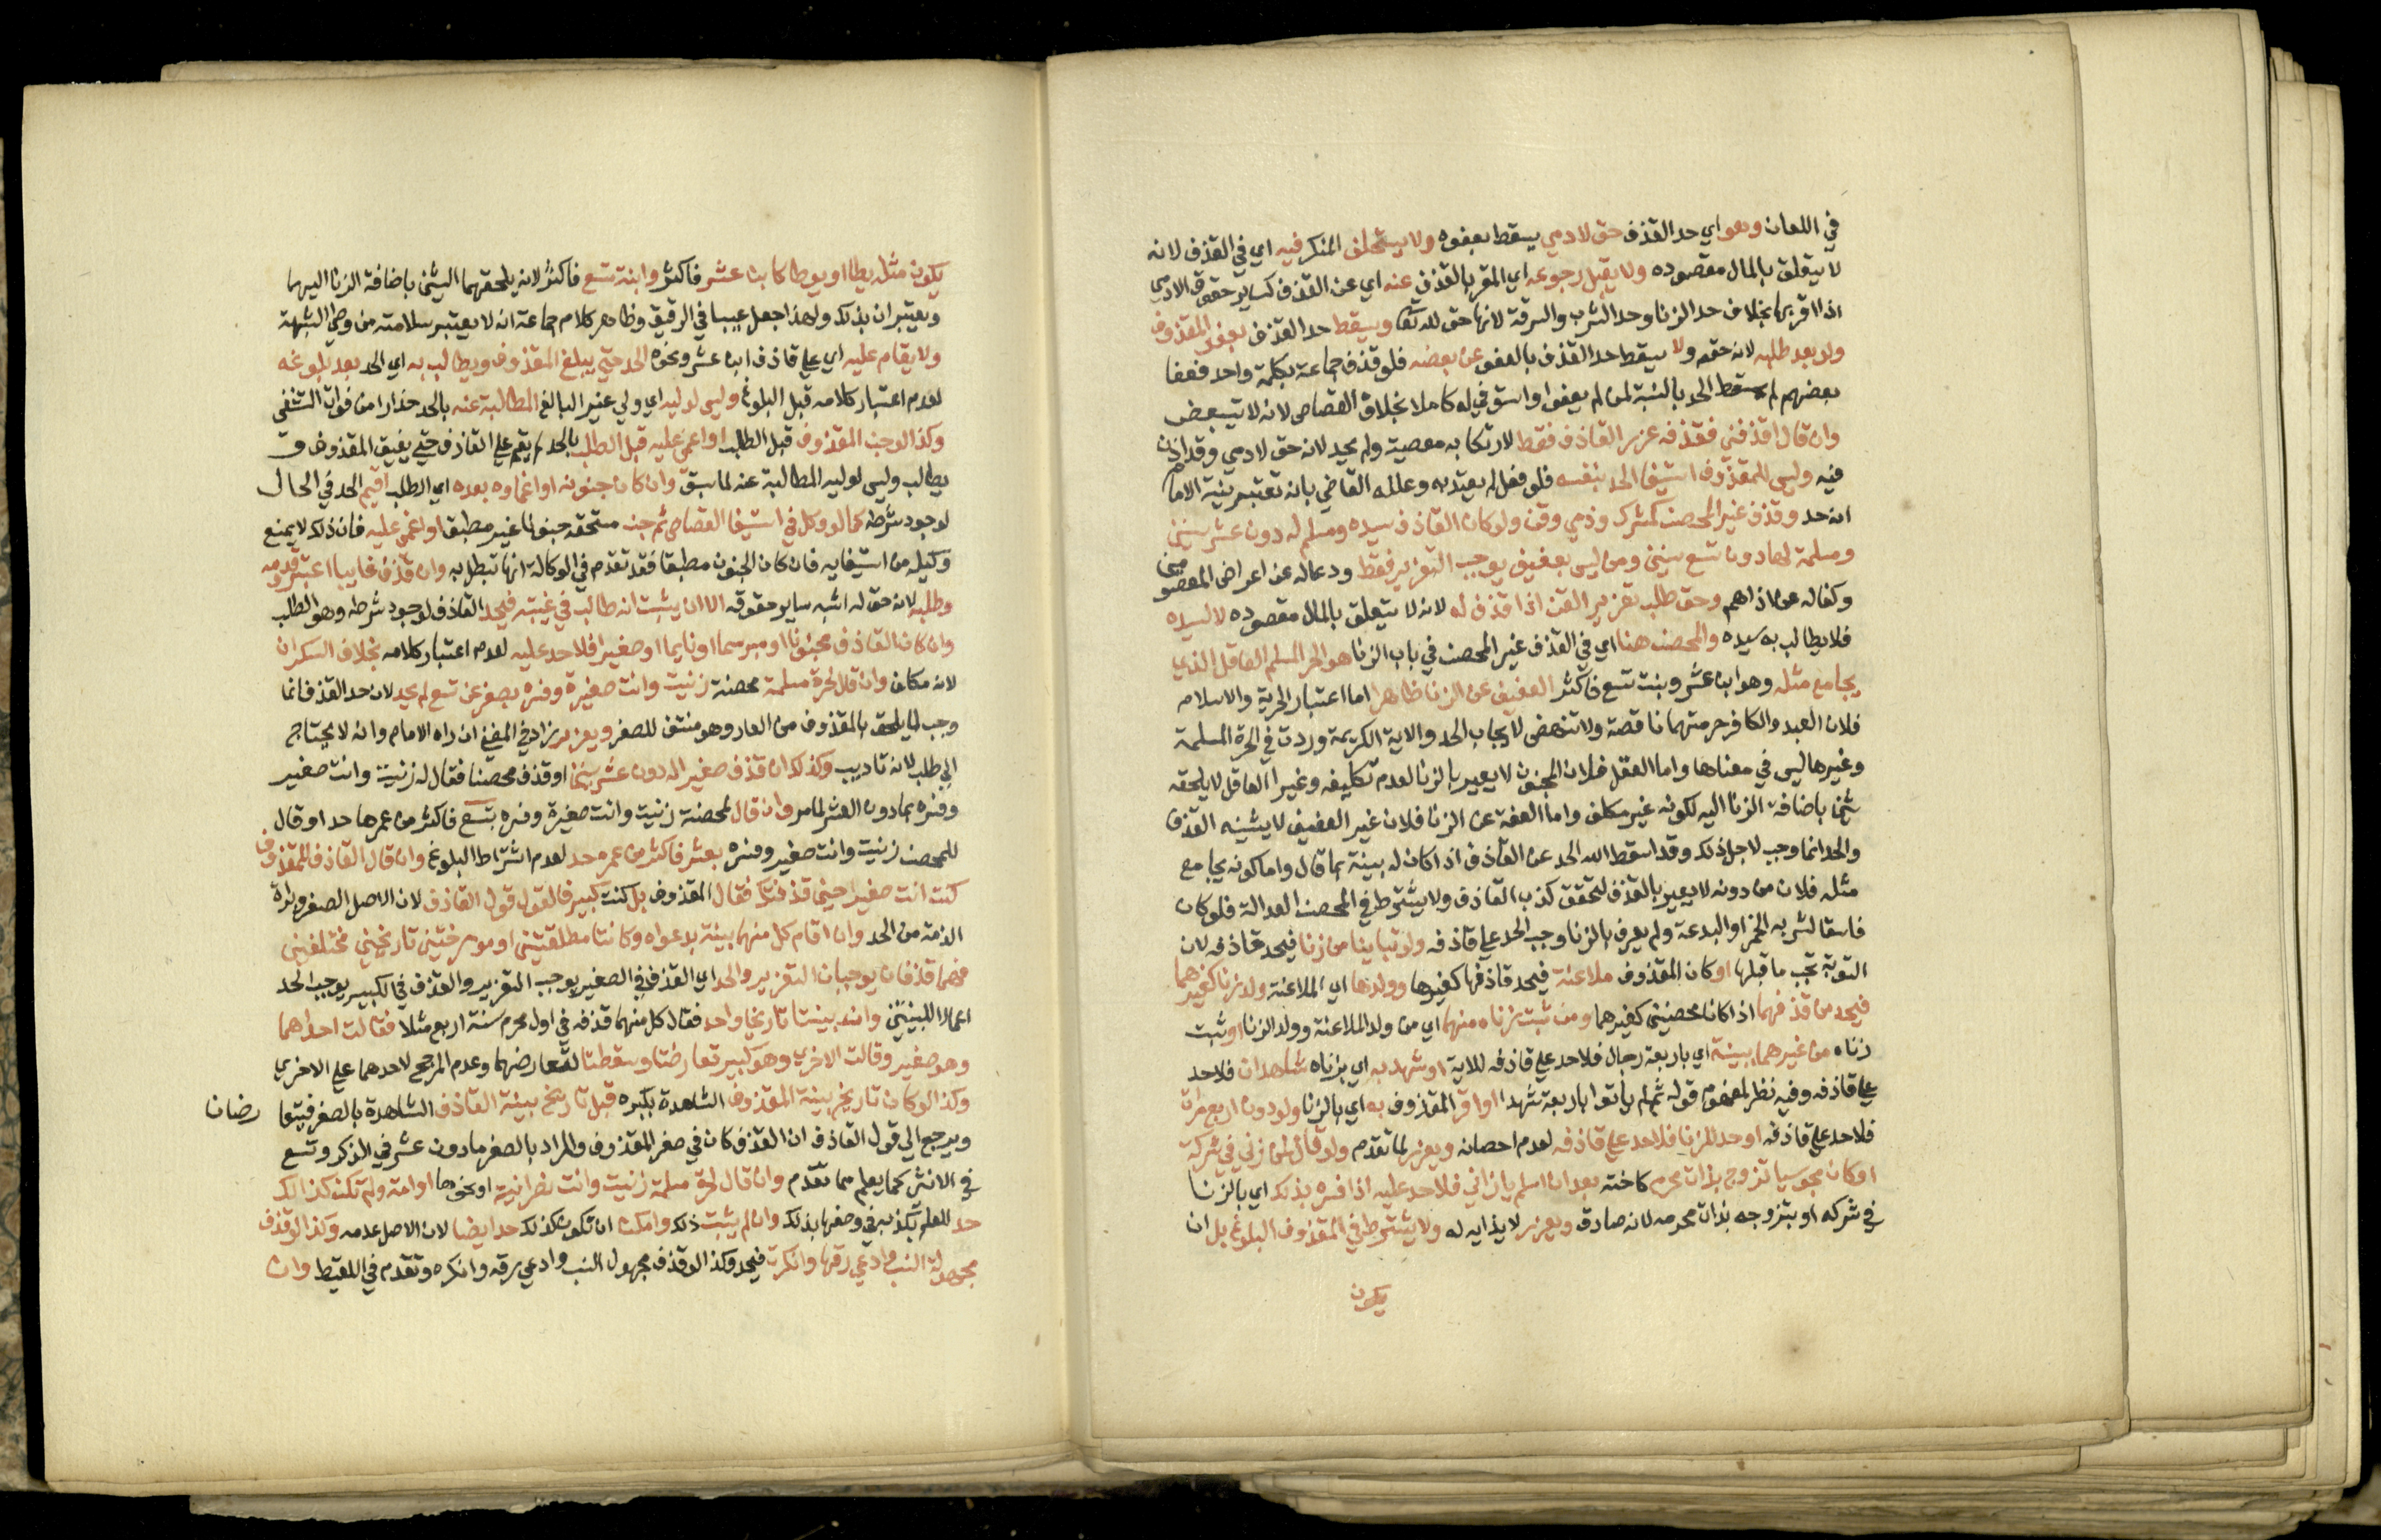 في اللعان وهو اي حد القذف حق لادمي يسقط بعفوه ولا يستحلف المنكر فيه اي في القذف لانه
لا يتعلق بالمال مقصوده ولا يقبل رجوعه اي المقر بالقذف عنه اي عن القذف كساير حقوق الادمي
اذا اقر بها بخلاف حد الزنا وحد الشرب والسرقة لانها حق لله تعا ويسقط حد القذف بعفو المقذوف
ولو بعد طلبه لانه حقه ولا يسقط حد القذف بالعفو عن بعضه فلو قذف جماعة بكلمة واحد فعفا
بعضهم لم يسقط الحد بالنسبة لمن لم يعفوا واستوفي له كاملا بخلاف القصاص لانه لا يتبعض
وان قال اقذفني فقذفه عزر القاذف فقط لارتكابه معصية ولم يحد لانه حق لادمي وقد اذن
فيه وليس للمقذوف استيفا الحد بنفسه فلو فعل لم يعتد به وعلله القاضي بانه تعتبر نية الامام
انه حد وقذف غير المحصن كمشرك وذمي وقن ولو كان القاذف سيده ومسلم له دون عشر سنين
ومسلمة لها دون تسع سنين ومن ليس بعفيف يوجب التعزير فقط ردعا له عن اعراض المعصومين
وكفا له عن اذاهم وحق طلب تعزير القن اذا قذف له لانه لا يتعلق بالمال مقصوده لا لسيده
فلا يطالب به سيده والمحصن هنا اي في القذف غير المحصن في باب الزنا هو الحر المسلم العاقل الذي
يجامع مثله وهو ابن عشر وبنت تسع فاكثر العفيف عن الزنا ظاهرا اما اعتبار الحرية والاسلام
فلان العبد والكافر حرمتهما ناقصة ولا تنهض لايجاب الحد والاية الكريمة وردت في الحرة المسلمة
وغيرها ليس في معناها واما العقل فلان المجنون لا يعير بالزنا لعدم تكليفه وغير العاقل لا يلحقه
شين باضافة الزنا اليه لكونه غير مكلف واما العفة عن الزنا فلان غير العفيف لا يشينه القذف
والحد انما وجب لاجل ذلك وقد اسقط الله الحد عن القاذف اذا كان له بينة بما قال واما كونه يجامع
مثله فلان من دونه لا يعير بالقذف لتحقق كذب القاذف ولا يشترط في المحصن العدالة فلو كان
فاسقا لشربه الخمر او البدعة ولم يعرف بالزنا وجب الحد علي قاذفه ولو تايبا من زنا فيحد قاذفه لان
التوبة تجب ما قبلها او كان المقذوف ملاعنة فيحد قاذفها كغيرها وولدها اي الملاعنة وولد زنا كغيرهما
فيحد من قذفهما اذا كانا محصنين كغيرهما ومن ثبت زناه منهما اي من ولد الملاعنة وولد الزنا او ثبت
زناه من غيرهما ببينة اي باربعة رجال فلا حد علي قاذفه للاية او شهد به اي بزناه شاهدان فلا حد
علي قاذفه وفيه نظر لمفهوم قوله ثم لم ياتوا باربعة شهدا او اقر المقذوف به اي بالزنا ولو دون اربع مرات
فلا حد علي قاذفه او حد للزنا فلا حد علي قاذفه لعدم احصانه ويعزر لما تقدم ولو قال لمن زني في شركه
او كان مجوسيا تزوج بذات محرم كاخته بعد ان اسلم يا زاني فلا حد عليه اذا فسره بذلك اي بالزنا
في شركه او بتزوجه بذات محرمه لانه صادق ويعزر لايذايه له ولا يشترط في المقذوف البلوغ بل ان
يكون
يكون مثله يطا او يوطا كابن عشر فاكثر وابنة تسع فاكثر لانه يلحقهما الشين باضافة الزنا اليهما
ويعتبران بذلك ولهذا جعل عيبا في الرقيق وظاهر كلام جماعة انه لا يعتبر سلامته من وطي الشبهة
ولا يقام عليه اي علي قاذف ابن عشر ونحوه الحد حتي يبلغ المقذوف ويطالب به اي الحد بعد بلوغه
لعدم اعتبار كلامه قبل البلوغ وليس لوليه اي ولي غير البالغ المطالبة عنه بالحد حذارا من فوات التشفي
وكذا لو جن المقذوف قبل الطلب او اغمي عليه قبل الطلب بالحد لم يقم علي القاذف حتي يفيق المقذوف و
يطالب وليس لوليه المطالبة عنه لما سبق وان كان جنونه او اغماوه بعده اي الطلب اقيم الحد في الحال
لوجود شرطه كما لو وكل في استيفا القصاص ثم جن مستحقه جنونا غير مطبق او اغمي عليه فان ذلك لا يمنع
وكيله من استيفايه فان كان الجنون مطبقا فقد تقدم في الوكالة انها تبطل به وان قذف غايبا اعتبر قدومه
وطلبه لانه حق له اشبه ساير حقوقه الا ان يثبت انه طالب في غيبته فيحد القاذف لوجود شرطه وهو الطلب
وان كان القاذف مجنونا او مبرسما او نايما او صغيرا فلا حد عليه لعدم اعتبار كلامه بخلاف السكران
لانه مكلف وان قال لحرة مسلمة محصنة زنيت وانت صغيرة وفسره بصغر عن تسع لم يحد لان حد القذف انما
وجب لما يلحق بالمقذوف من العار وهو منتف للصغر ويعزر زاد في المغني ان راه الامام وانه لا يحتاج
الي طلب لانه تاديب وكذلك ان قذف صغيرا له دون عشر سنين او قذف محصنا فقال له زنيت وانت صغير
وفسره بما دون العشر لما مر وان قال لمحصنة زنيت وانت صغيرة وفسره بتسع فاكثر من عمرها حد او قال
للمحصن زنيت وانت صغير وفسره بعشر فاكثر من عمره حد لعدم اشتراط البلوغ وان قال القاذف للمقذوف
كنت انت صغيرا حين قذفتك فقال المقذوف بل كنت كبيرا فالقول قول القاذف لان الاصل الصغر وبراة
الذمة من الحد وان اقام كل منهما بينة بدعواه وكانتا مطلقتين او مورختين تاريخين مختلفين
فهما قذفان يوجبان التعزير والحد اي القذف في الصغير يوجب التعزير والقذف في الكبير يوجب الحد
اعمالا للبينتين وان بينتا تاريخا واحد فقال كل منهما قذفه في اول محرم سنة اربع مثلا فقالت احداهما
وهو صغير وقالت الاخري وهو كبير تعارضتا وسقطتا لتعارضهما وعدم المرجح لاحدهما علي الاخري
وكذا لو كان تاريخ بينة المقذوف الشاهدة بكبره قبل تاريخ بينة القاذف الشاهدة بالصغر فيتعا رضان
ويرجع الي قول القاذف ان القذف كان في صغر المقذوف والمراد بالصغر ما دون عشر في الذكر وتسع
في الانثي كما يعلم مما تقدم وان قال لحرة مسلمة زنيت وانت نصرانية او نحوها او امة ولم تكن كذالك
حد للعلم بكذبه في وصفها بذلك وان لم يثبت ذلك وامكن ان تكون كذلك حد ايضا لان الاصل عدمه وكذا لو قذف
مجهولة النسب وادعي رقها وانكرت فيحد وكذا لو قذف مجهول النسب وادعي رقه وانكره وتقدم في اللقيط وان